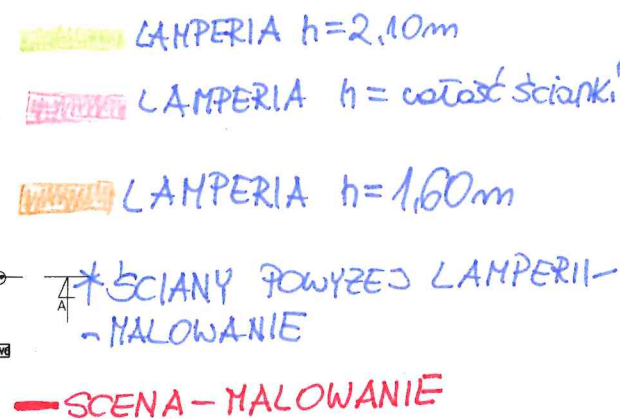 LAMPERIA h=2,10m
LAMPERIA h= całość ścianki
LAMPERIA h=1,60m
A
* ŚCIANY POWYŻEJ LAMPERII-
- MALOWANIE
SCENA - MALOWANIE